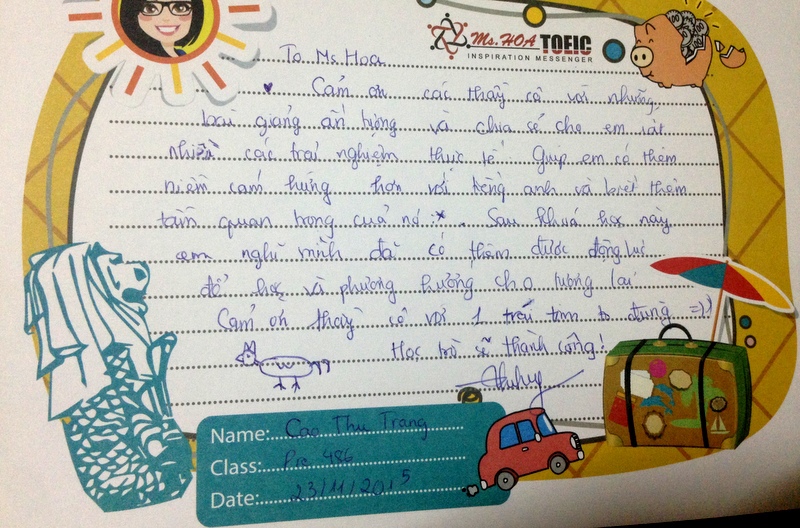 Ms. HOA TOEIC
INSPIRATION MESSENGER
To Ms. Hoa
Cảm ơn các thầy cô với những
bài giảng ấn tượng và chia sẻ cho em rất
nhiều các trải nghiệm thực tế. Giúp em có thêm
niềm cảm hứng hơn với tiếng anh và biết thêm
tầm quan trọng của nó :*. Sau khoá học này
em nghĩ mình đã có thêm được động lực
để học và phương hướng cho tương lai
Cảm ơn thầy cô với 1 trái tim to đùng =))
Học trò sẽ thành công!
Name: Cao Thu Trang
Class: Pre 486
Date: 23/11/2015